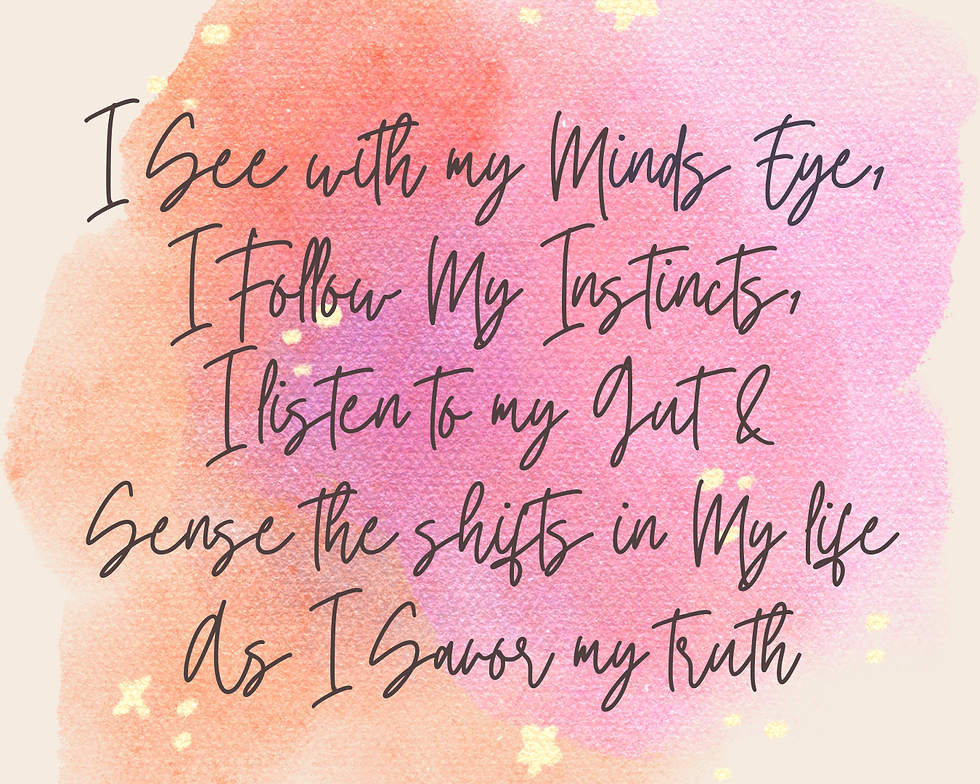 I See with my Minds Eye,
I Follow My Instincts,
I listen to my Gut &
Sense the shifts in My life
As I Savor my truth